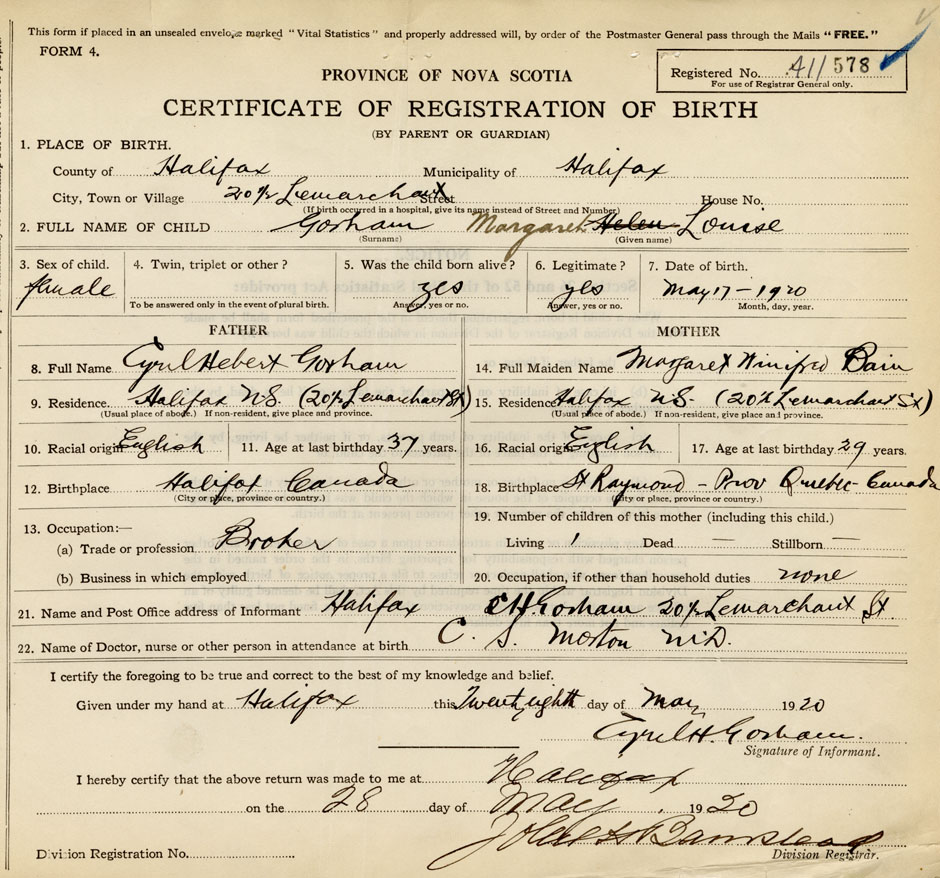 This form if placed in an unsealed envelope marked "Vital Statistics" and properly addressed will, by order of the Postmaster General pass through the Mails "FREE."
FORM 4.
Registered No. 411 578
For use of Registrar General only.
PROVINCE OF NOVA SCOTIA
CERTIFICATE OF REGISTRATION OF BIRTH
(BY PARENT OR GUARDIAN)
1. PLACE OF BIRTH.
County of Halifax Municipality of Halifax
City, Town or Village 20½ Lemarchant Street House No.
(If birth occurred in a hospital, give its name instead of Street and Number)
2. FULL NAME OF CHILD Gorham Margaret Helen Louise
(Surname) (Given name)
3. Sex of child. 4. Twin, triplet or other? 5. Was the child born alive? 6. Legitimate? 7. Date of birth.
female yes yes May 17 - 1920
To be answered only in the event of plural birth. Answer, yes or no. Answer, yes or no. Month, day, year.
FATHER MOTHER
8. Full Name Cyril Hebert Gorham 14. Full Maiden Name Margaret Winifred Bain
9. Residence Halifax N.S. (20½ Lemarchant St) 15. Residence Halifax N.S. (20½ Lemarchant St)
(Usual place of abode.) If non-resident, give place and province. (Usual place of abode.) If non-resident, give place and province.
10. Racial origin English 11. Age at last birthday 37 years. 16. Racial origin English 17. Age at last birthday 29 years.
12. Birthplace Halifax Canada 18. Birthplace St Raymond - Prov Quebec - Canada
(City or place, province or country.) (City or place, province or country.)
13. Occupation:— 19. Number of children of this mother (including this child.)
(a) Trade or profession Broker Living 1 Dead — Stillborn —
(b) Business in which employed 20. Occupation, if other than household duties none
21. Name and Post Office address of Informant Halifax C H Gorham 20½ Lemarchant St.
22. Name of Doctor, nurse or other person in attendance at birth C. S. Morton M.D.
I certify the foregoing to be true and correct to the best of my knowledge and belief.
Given under my hand at Halifax this Twenty eighth day of May 1920
Cyril H. Gorham.
Signature of Informant.
I hereby certify that the above return was made to me at Halifax
on the 28 day of May 1920
Division Registration No. Division Registrar.